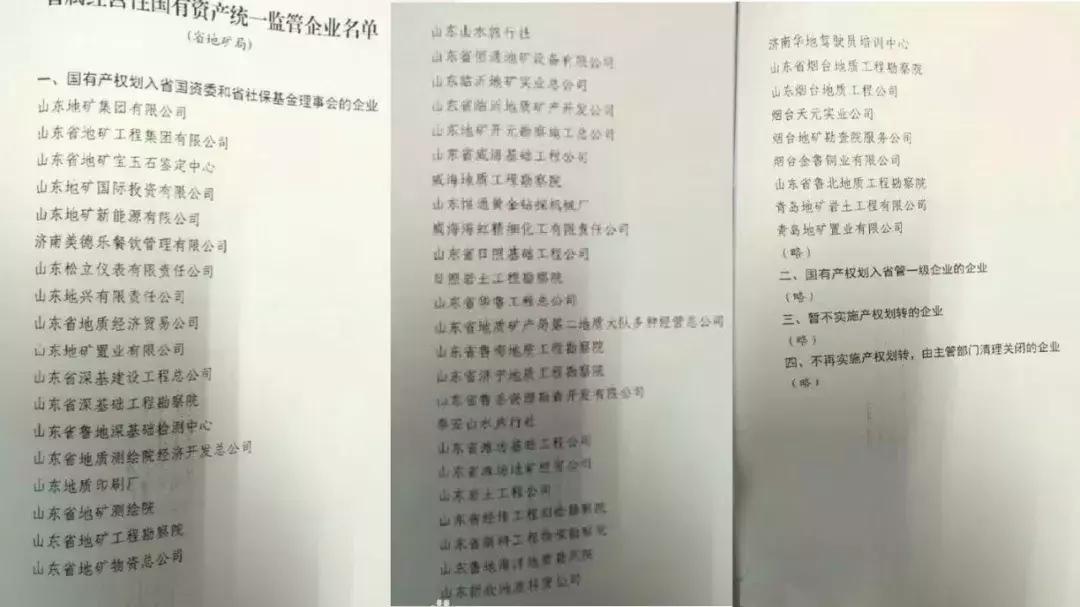 省属经营性国有资产统一监管企业名单
（省地矿局）
一、国有产权划入省国资委和省社保基金理事会的企业
山东地矿集团有限公司
山东省地矿工程集团有限公司
山东省地矿宝玉石鉴定中心
山东地矿国际投资有限公司
山东地矿新能源有限公司
济南美德乐餐饮管理有限公司
山东松立仪表有限责任公司
山东地兴有限责任公司
山东省地质经济贸易公司
山东地矿置业有限公司
山东省深基建设工程总公司
山东省深基础工程勘察院
山东省鲁地深基础检测中心
山东省地质测绘院经济开发总公司
山东地质印刷厂
山东省地矿测绘院
山东省地矿工程勘察院
山东省地矿物资总公司
山东山水旅行社
山东省恒通地矿设备有限公司
山东临沂地矿实业总公司
山东省临沂地质矿产开发公司
山东地矿开元勘察施工总公司
山东省威海基础工程公司
威海地质工程勘察院
山东恒通黄金钻探机械厂
威海海虹精细化工有限责任公司
山东省日照基础工程公司
日照岩土工程勘察院
山东省华鲁工程总公司
山东省地质矿产局第二地质大队多种经营总公司
山东省鲁南地质工程勘察院
山东省济宁地质工程勘察院
山东省鲁圣资源勘查开发有限公司
泰安山水旅行社
山东省潍坊基础工程公司
山东省潍坊地矿经贸公司
山东岩土工程公司
山东省经纬工程测绘勘察院
山东省工程物探勘察院
山东鲁地海洋地质勘察院
山东地质科贸公司
济南华地驾驶员培训中心
山东省烟台地质工程勘察院
山东烟台地质工程公司
烟台天元实业公司
烟台地矿勘查院服务公司
烟台金鲁铜业有限公司
山东省鲁北地质工程勘察院
青岛地矿岩土工程有限公司
青岛地矿置业有限公司
（略）
二、国有产权划入省管一级企业的企业
（略）
三、暂不实施产权划转的企业
（略）
四、不再实施产权划转，由主管部门清理关闭的企业
（略）